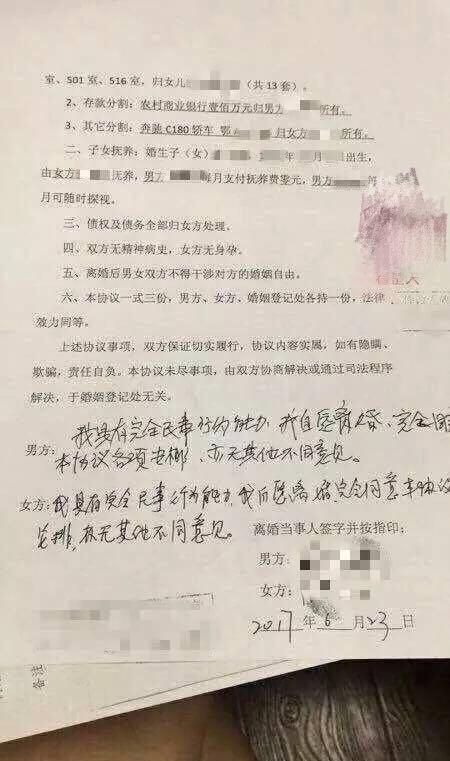 室、501 室、516 室,归女儿 (共 13 套)。
2、存款分割:农村商业银行壹佰万元归男方 所有。
3、其它分割:奔驰 C180 轿车 鄂 归女方 所有。
二、子女抚养:婚生子(女) 年 月 出生,
由女方 抚养,男方 每月支付抚养费零元,男方 每
月可随时探视。
三、债权及债务全部归女方处理。
四、双方无精神病史,女方无身孕。
五、离婚后男女双方不得干涉对方的婚姻自由。
六、本协议一式三份,男方、女方、婚姻登记处各持一份,法律
效力同等。
上述协议事项,双方保证切实履行,协议内容实属,如有隐瞒、
欺骗,责任自负。本协议未尽事项,由双方协商解决或通过司法程序
解决,于婚姻登记处无关。
我具有完全民事行为能力,我自愿离婚,完全同
男方:本协议各项安排,亦无其他不同意见。
女方:我具有完全民事行为能力,我自愿离婚完全同意本协议
安排,亦无其他不同意见。
离婚当事人签字并按指印:
男方:
女方:
2017 年 6 月 23 日
备注